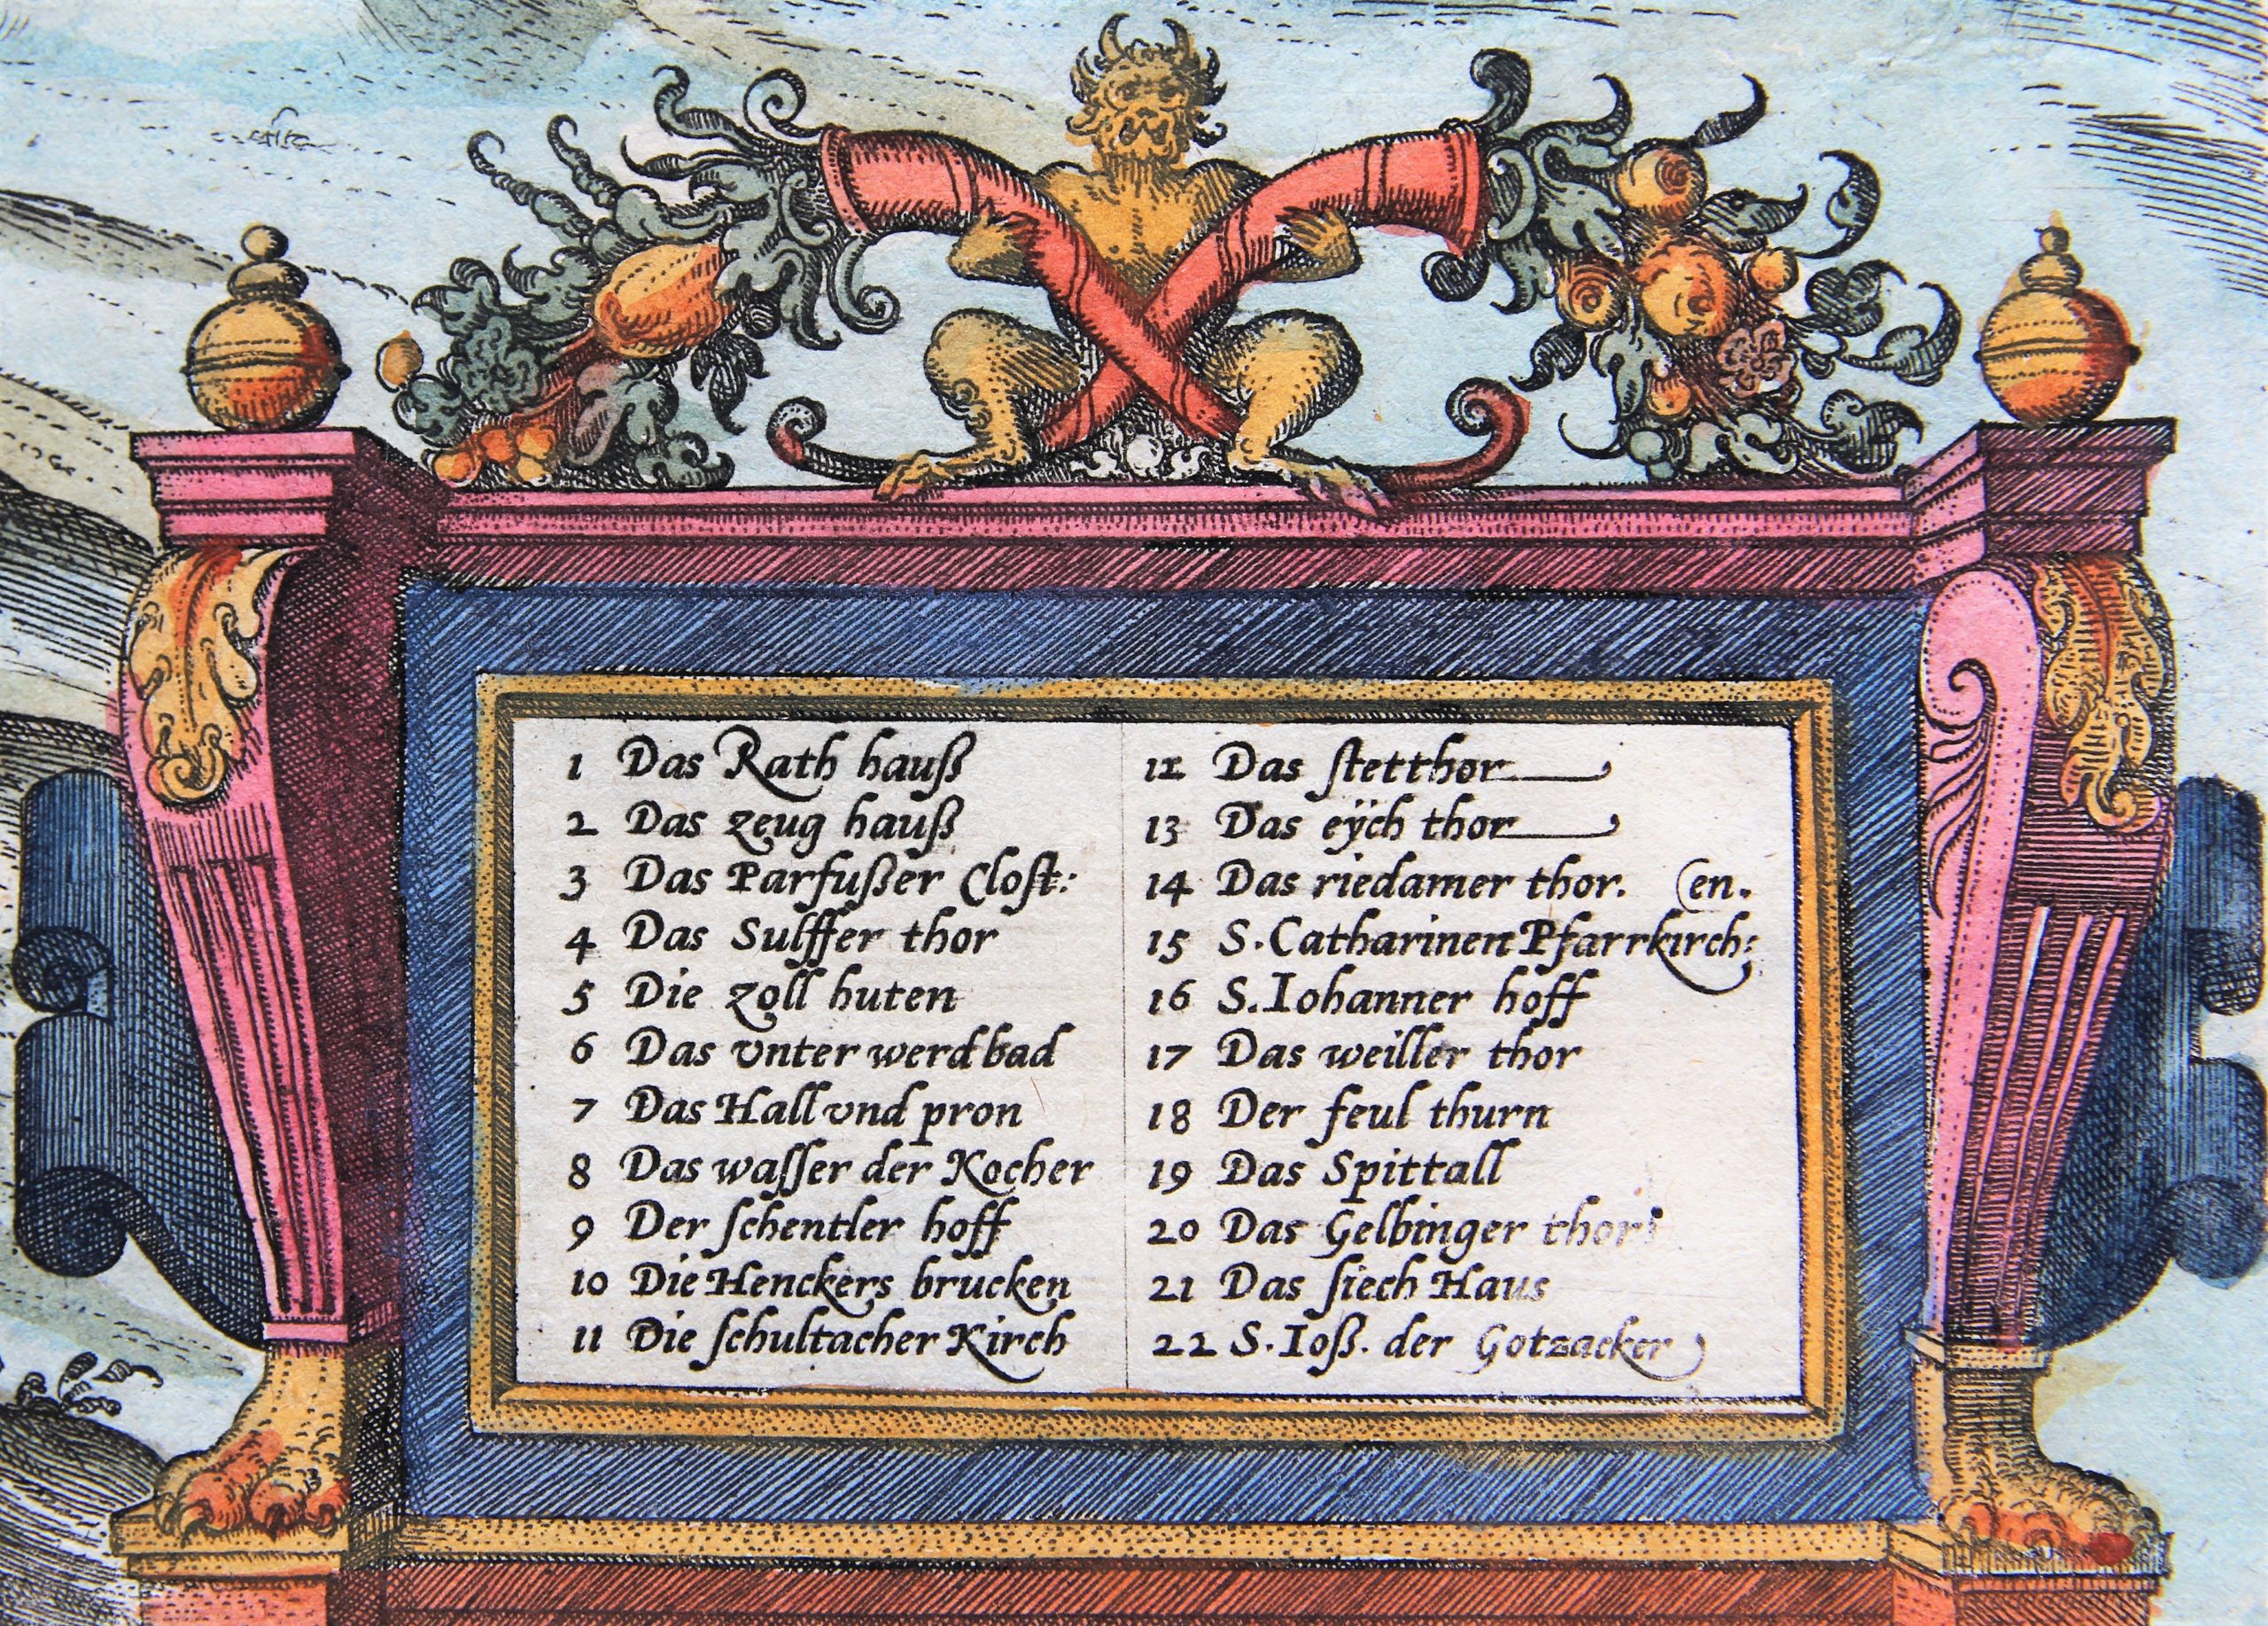 1 Das Rath hauß
2 Das zeug hauß
3 Das Parfußer Clost:
4 Das Sulffer thor
5 Die zoll huten
6 Das vnter werdbad
7 Das Hall vnd pron
8 Das waſſer der Kocher
9 Der ſchentler hoff
10 Die Henckers brucken
11 Die ſchultacher Kirch
12 Das ſtetthor
13 Das eÿch thor
14 Das riedamer thor. en.
15 S. Catharinen Pfarrkirch:
16 S. Iohanner hoff
17 Das weiller thor
18 Der feul thurn
19 Das Spittall
20 Das Gelbinger thor:
21 Das ſiech Haus
22 S. Ioß. der Gotzacker